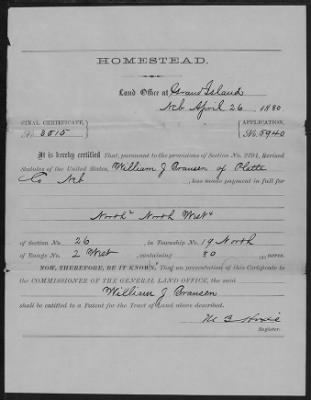 HOMESTEAD.
Land Office at Grand Island
Neb April 26 1880
FINAL CERTIFICATE,
No. 2515
APPLICATION,
No. 5940
It is hereby certified That, pursuant to the provisions of Section No. 2291, Revised
Statutes of the United States, William J Bransen of Platte
Co Neb , has made payment in full for
North ½ North West ¼
of Section No. 26 , in Township No. 19 North
of Range No. 2 West , containing 80 acres.
NOW, THEREFORE, BE IT KNOWN, That on presentation of this Certificate to
the COMMISSIONER OF THE GENERAL LAND OFFICE, the said
William J Bransen
shall be entitled to a Patent for the Tract of Land above described.
M B Hoxie
Register.